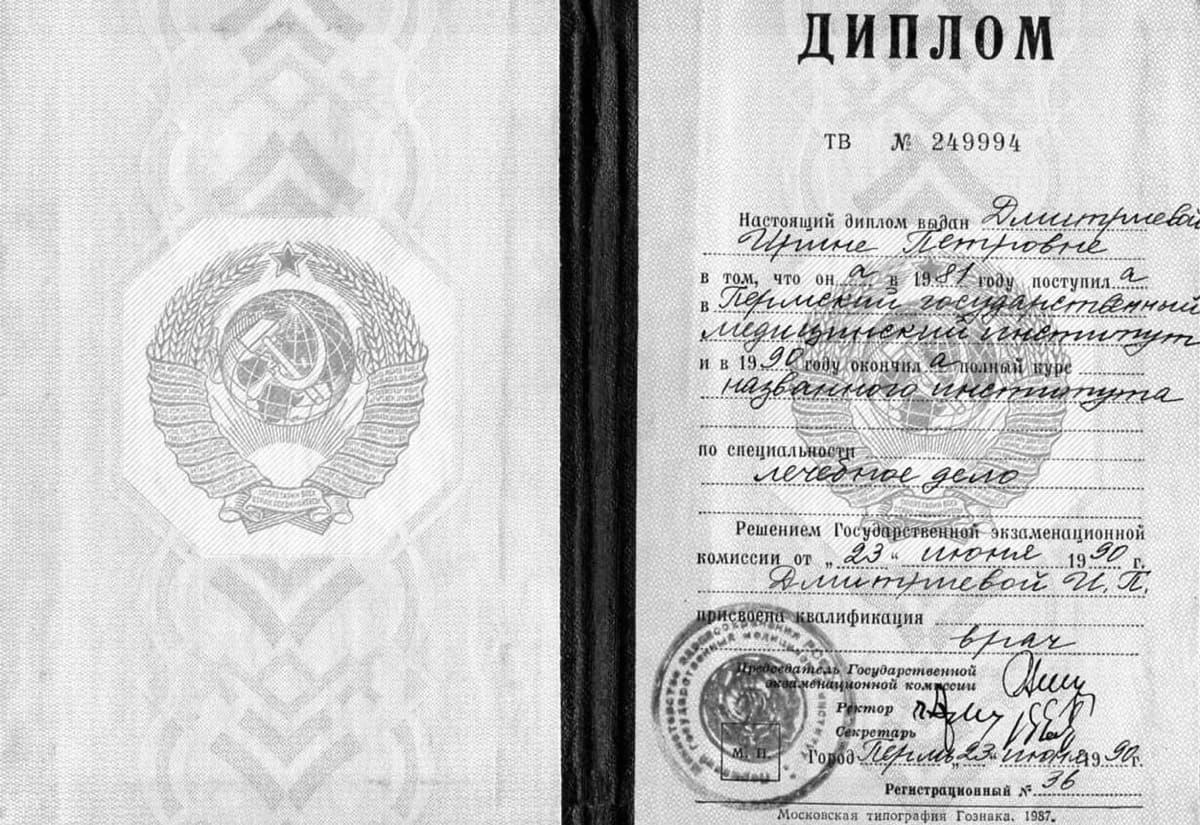 ПРОЛЕТАРИИ ВСЕХ
СТРАН, СОЕДИНЯЙТЕСЬ!
ДИПЛОМ
ТВ № 249994
Настоящий диплом выдан Дмитриевой
Ирине Петровне
в том, что он а в 1981 году поступил а
в Пермский государственный
медицинский институт
и в 1990 году окончил а полный курс
названного института
по специальности
лечебное дело
Решением Государственной экзаменационной
комиссии от „23“ июня 1990 г.
Дмитриевой И.П.
присвоена квалификация
врач
Председатель Государственной
экзаменационной комиссии
Ректор
Секретарь
М. П.
Город Пермь „23“ июня 1990 г.
Регистрационный № 36
Московская типография Гознака. 1987.